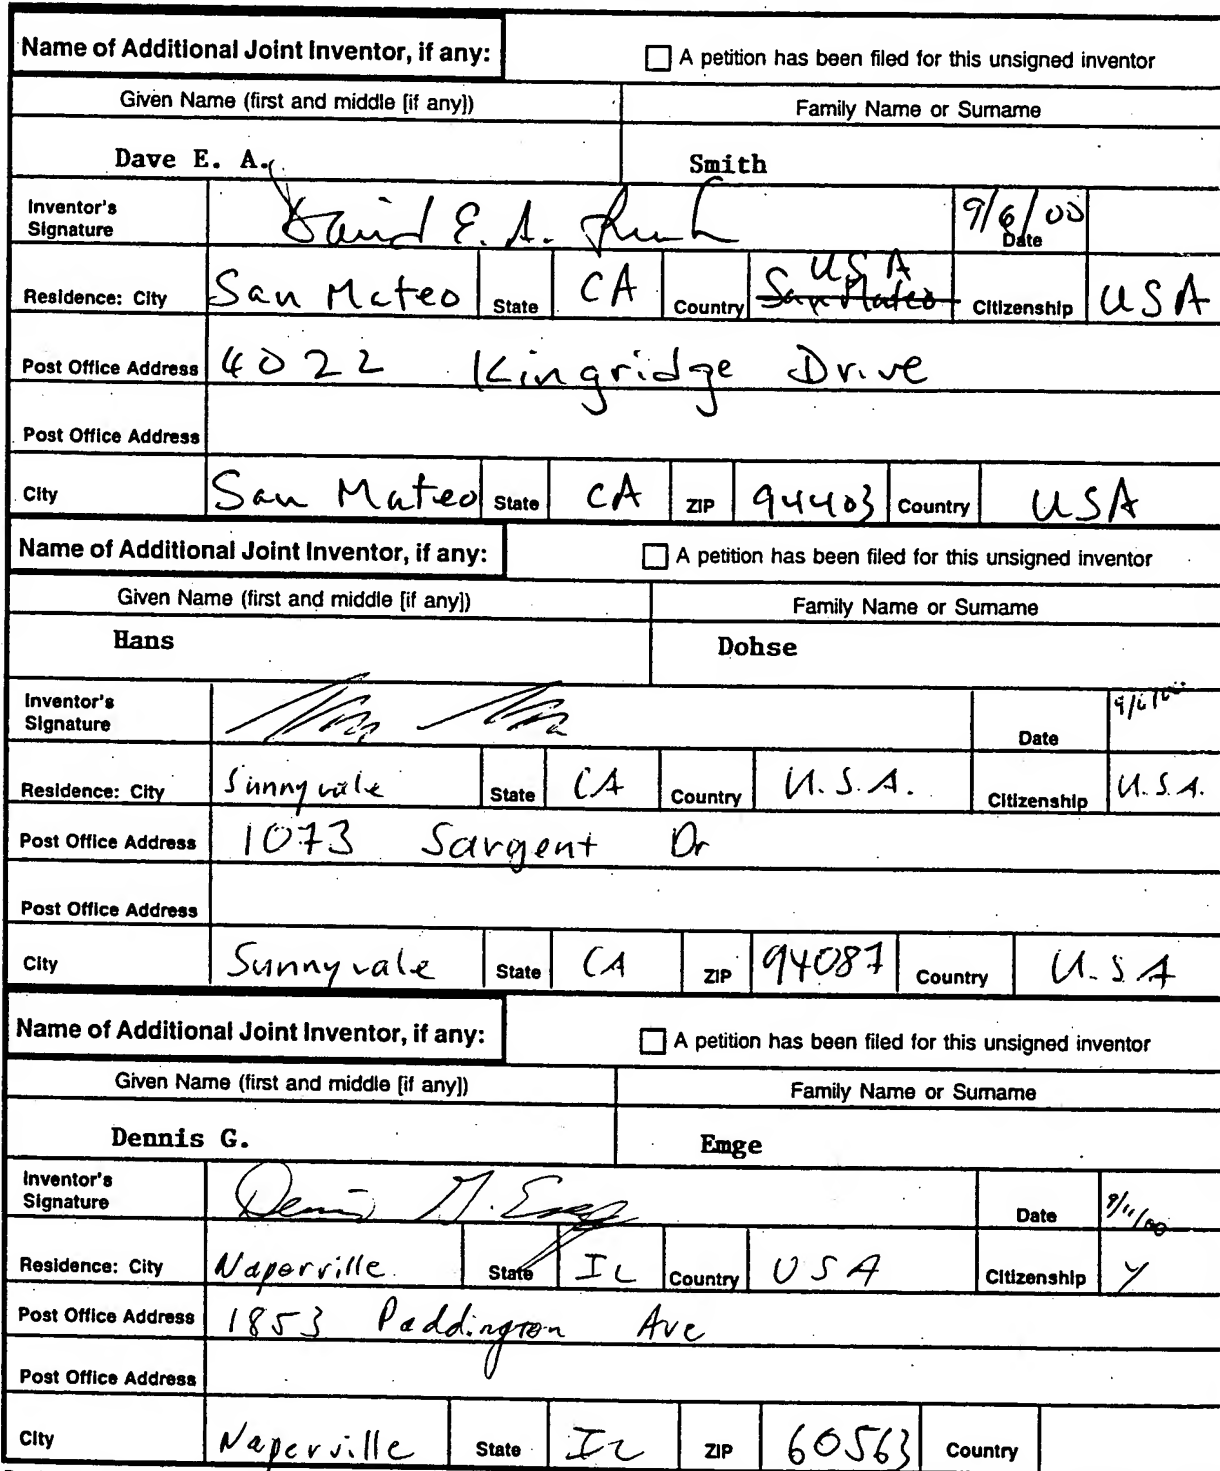 Name of Additional Joint Inventor, if any: A petition has been filed for this unsigned inventor
Given Name (first and middle [if any]) Family Name or Surname
Dave E. A. Smith
Inventor's Signature David E. A. Smith 9/6/00 Date
Residence: City San Mateo State CA Country USA San Mateo Citizenship USA
Post Office Address 4022 Kingridge Drive
Post Office Address
City San Mateo State CA ZIP 94403 Country USA
Name of Additional Joint Inventor, if any: A petition has been filed for this unsigned inventor
Given Name (first and middle [if any]) Family Name or Surname
Hans Dohse
Inventor's Signature Date
Residence: City Sunnyvale State CA Country U.S.A. Citizenship U.S.A.
Post Office Address 1073 Sargent Dr
Post Office Address
City Sunnyvale State CA ZIP 94087 Country U.S.A
Name of Additional Joint Inventor, if any: A petition has been filed for this unsigned inventor
Given Name (first and middle [if any]) Family Name or Surname
Dennis G. Emge
Inventor's Signature Dennis G. Emge Date 9/11/00
Residence: City Naperville State IL Country USA Citizenship Y
Post Office Address 1853 Paddington Ave
Post Office Address
City Naperville State IL ZIP 60563 Country